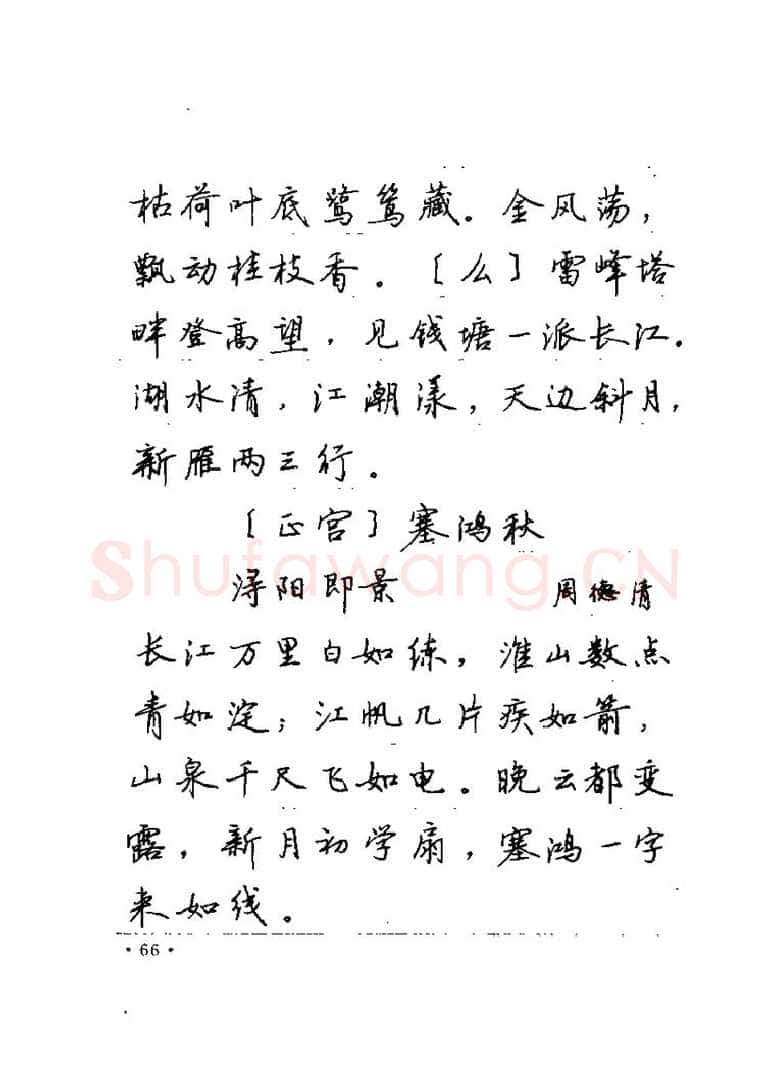 枯荷叶底鹭鸶藏。金风荡，
飘动桂枝香。〔么〕雷峰塔
畔登高望，见钱塘一派长江。
湖水清，江潮漾，天边斜月，
新雁两三行。
〔正宫〕塞鸿秋
浔阳即景 周德清
长江万里白如练，淮山数点
青如淀；江帆几片疾如箭，
山泉千尺飞如电。晚云都变
露，新月初学扇，塞鸿一字
来如线。
·66·
Shufawang.CN